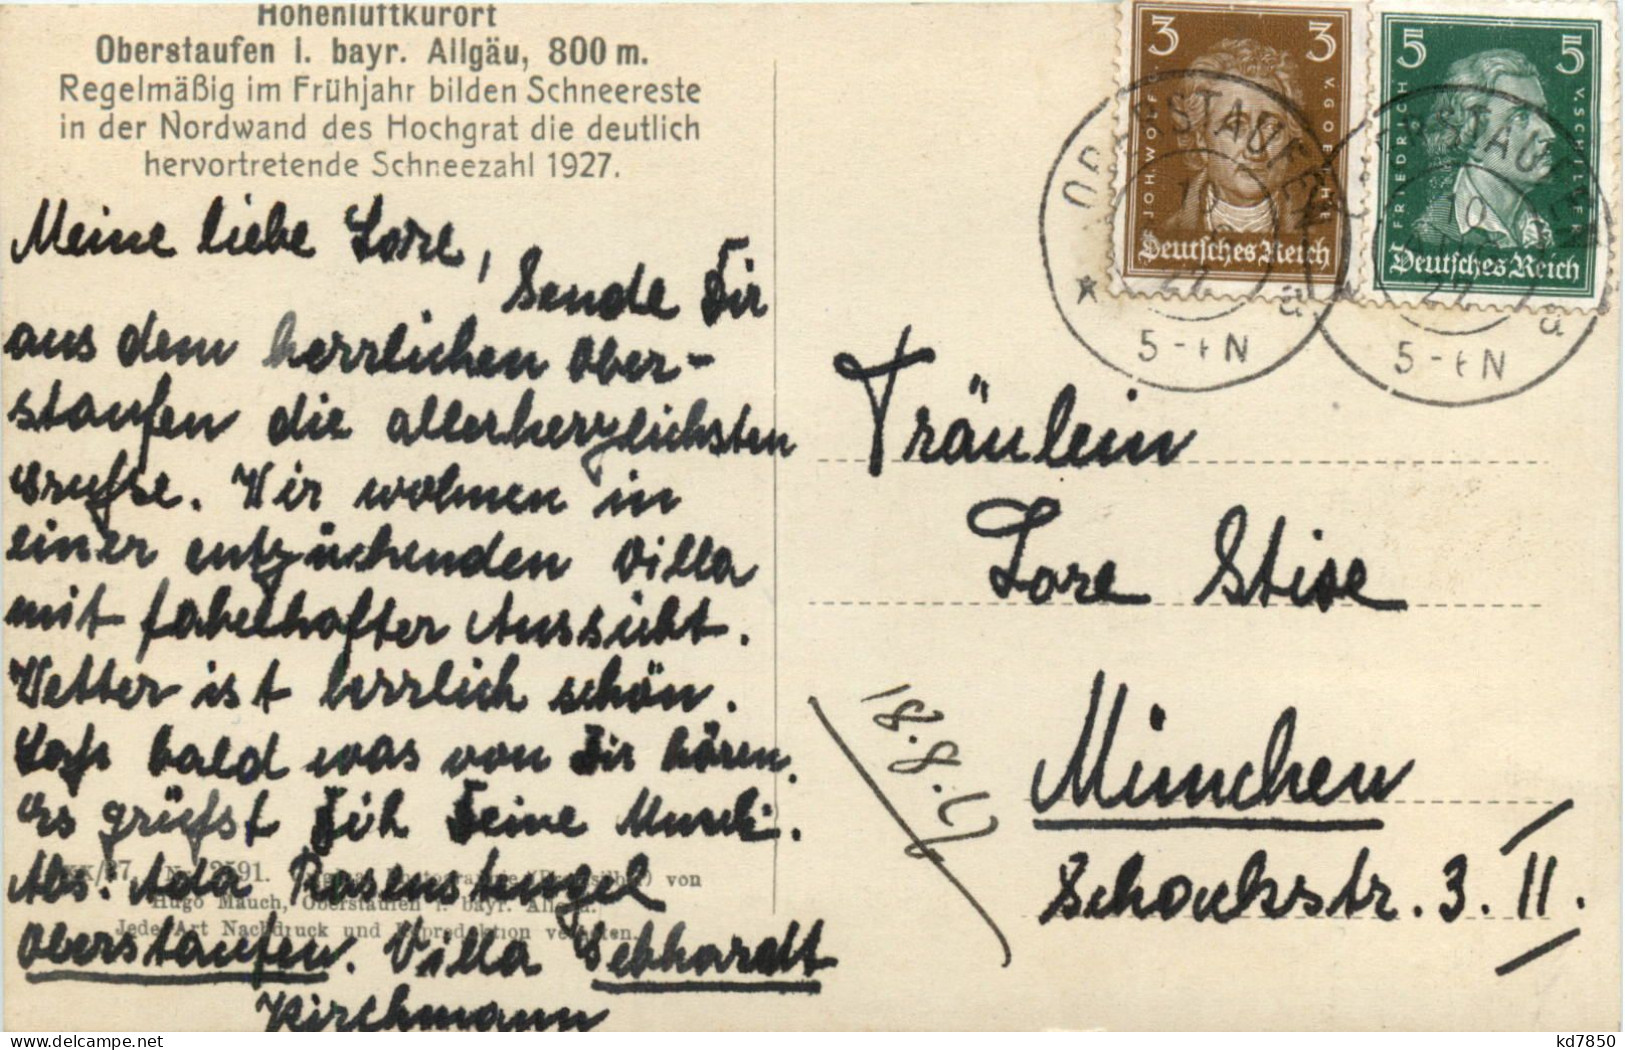 Höhenluftkurort
Oberstaufen i. bayr. Allgäu, 800 m.
Regelmäßig im Frühjahr bilden Schneereste
in der Nordwand des Hochgrat die deutlich
hervortretende Schneezahl 1927.
Meine liebe Lore,
Sende Dir
aus dem herrlichen Ober-
staufen die allerherzlichsten
Grüße. Wir wohnen in
einer entzückenden Villa
mit fabelhafter Aussicht.
Wetter ist herrlich schön.
Laß bald was von Dir hören.
Es grüßt Dich Deine
Abs: Ada Rosenstengel
Oberstaufen. Villa Gebhardt
Kirchmann
12591.
von
Hugo Mauch, Oberstaufen i. bayr. Allgäu.
Jede Art Nachdruck und Reproduktion verboten.
3 3
JOH. WOLFG. V. GOETHE
Deutsches Reich
5 5
FRIEDRICH V. SCHILLER
Deutsches Reich
OBERSTAUFEN
10
a
5-6N
OBERSTAUFEN
10
AUG
a
5-6N
Fräulein
Lore Stise
München
Schackstr. 3. II.
18.8.27
kd7850